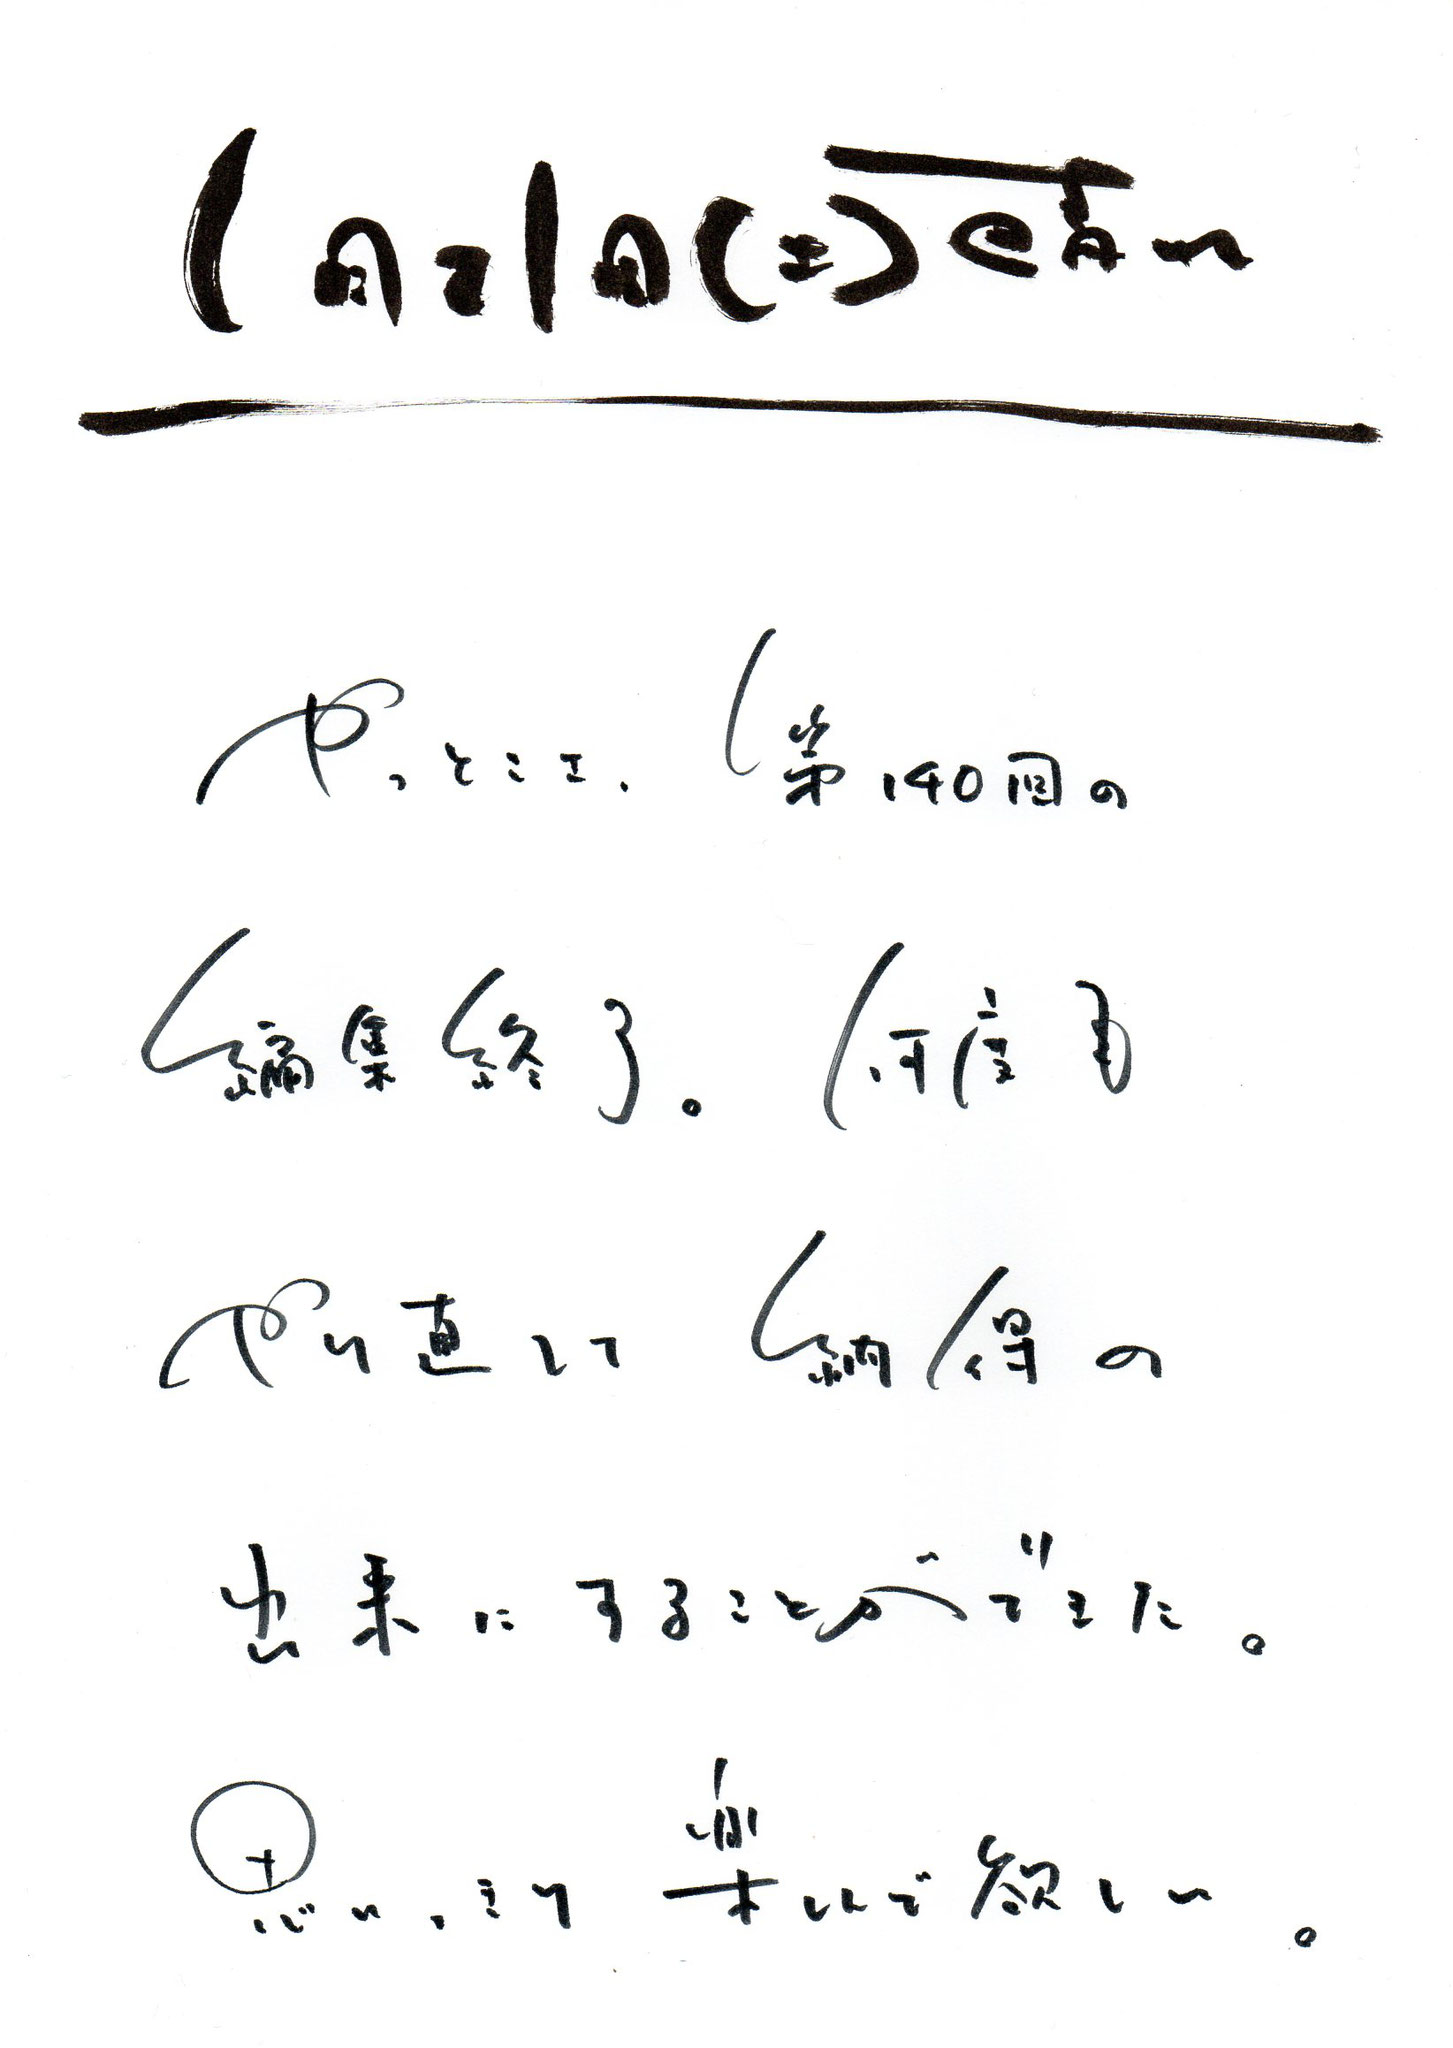 やっとこさ、第140回の
編集終了。何度も
やり直して納得の
出来にすることができた。
思いっきり楽しんで欲しい。